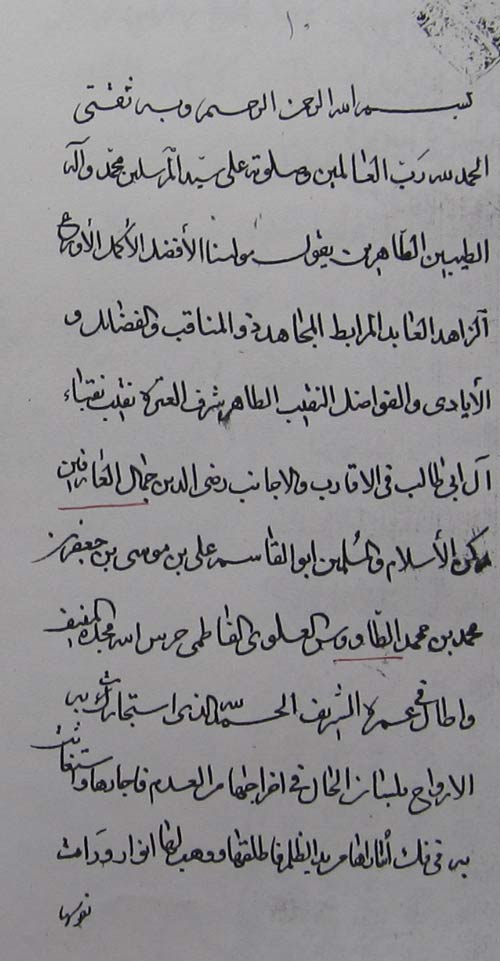 ١٠
بسم الله الرحمن الرحيم وبه ثقتى
الحمد لله رب العالمين وصلوته على سيد المرسلين محمد وآله
الطيبين الطاهرين يقول مولينا الأفضل الأكمل الأورع
الزاهد العابد المرابط المجاهد ذو المناقب والفضائل و
الأيادى والفواضل النقيب الطاهر شرف العترة نقيب نقباء
آل ابى طالب فى الاقارب والاجانب رضى الدين جمال العارفين
ركن الأسلام والمسلمين ابو القاسم على بن موسى بن جعفر بن
محمد بن محمد الطاووس العلوى الفاطمى حرس الله مجده المنيف
واطال فى عمره الشريف الحمد لله الذى استجارت به
الارواح بلسان الحال فى اخراجها من العدم فاجارها واستغاثت
به فى فك أسارها من يد الظلم فاطلقها ووهب لها انوار ودامت
نفوسها